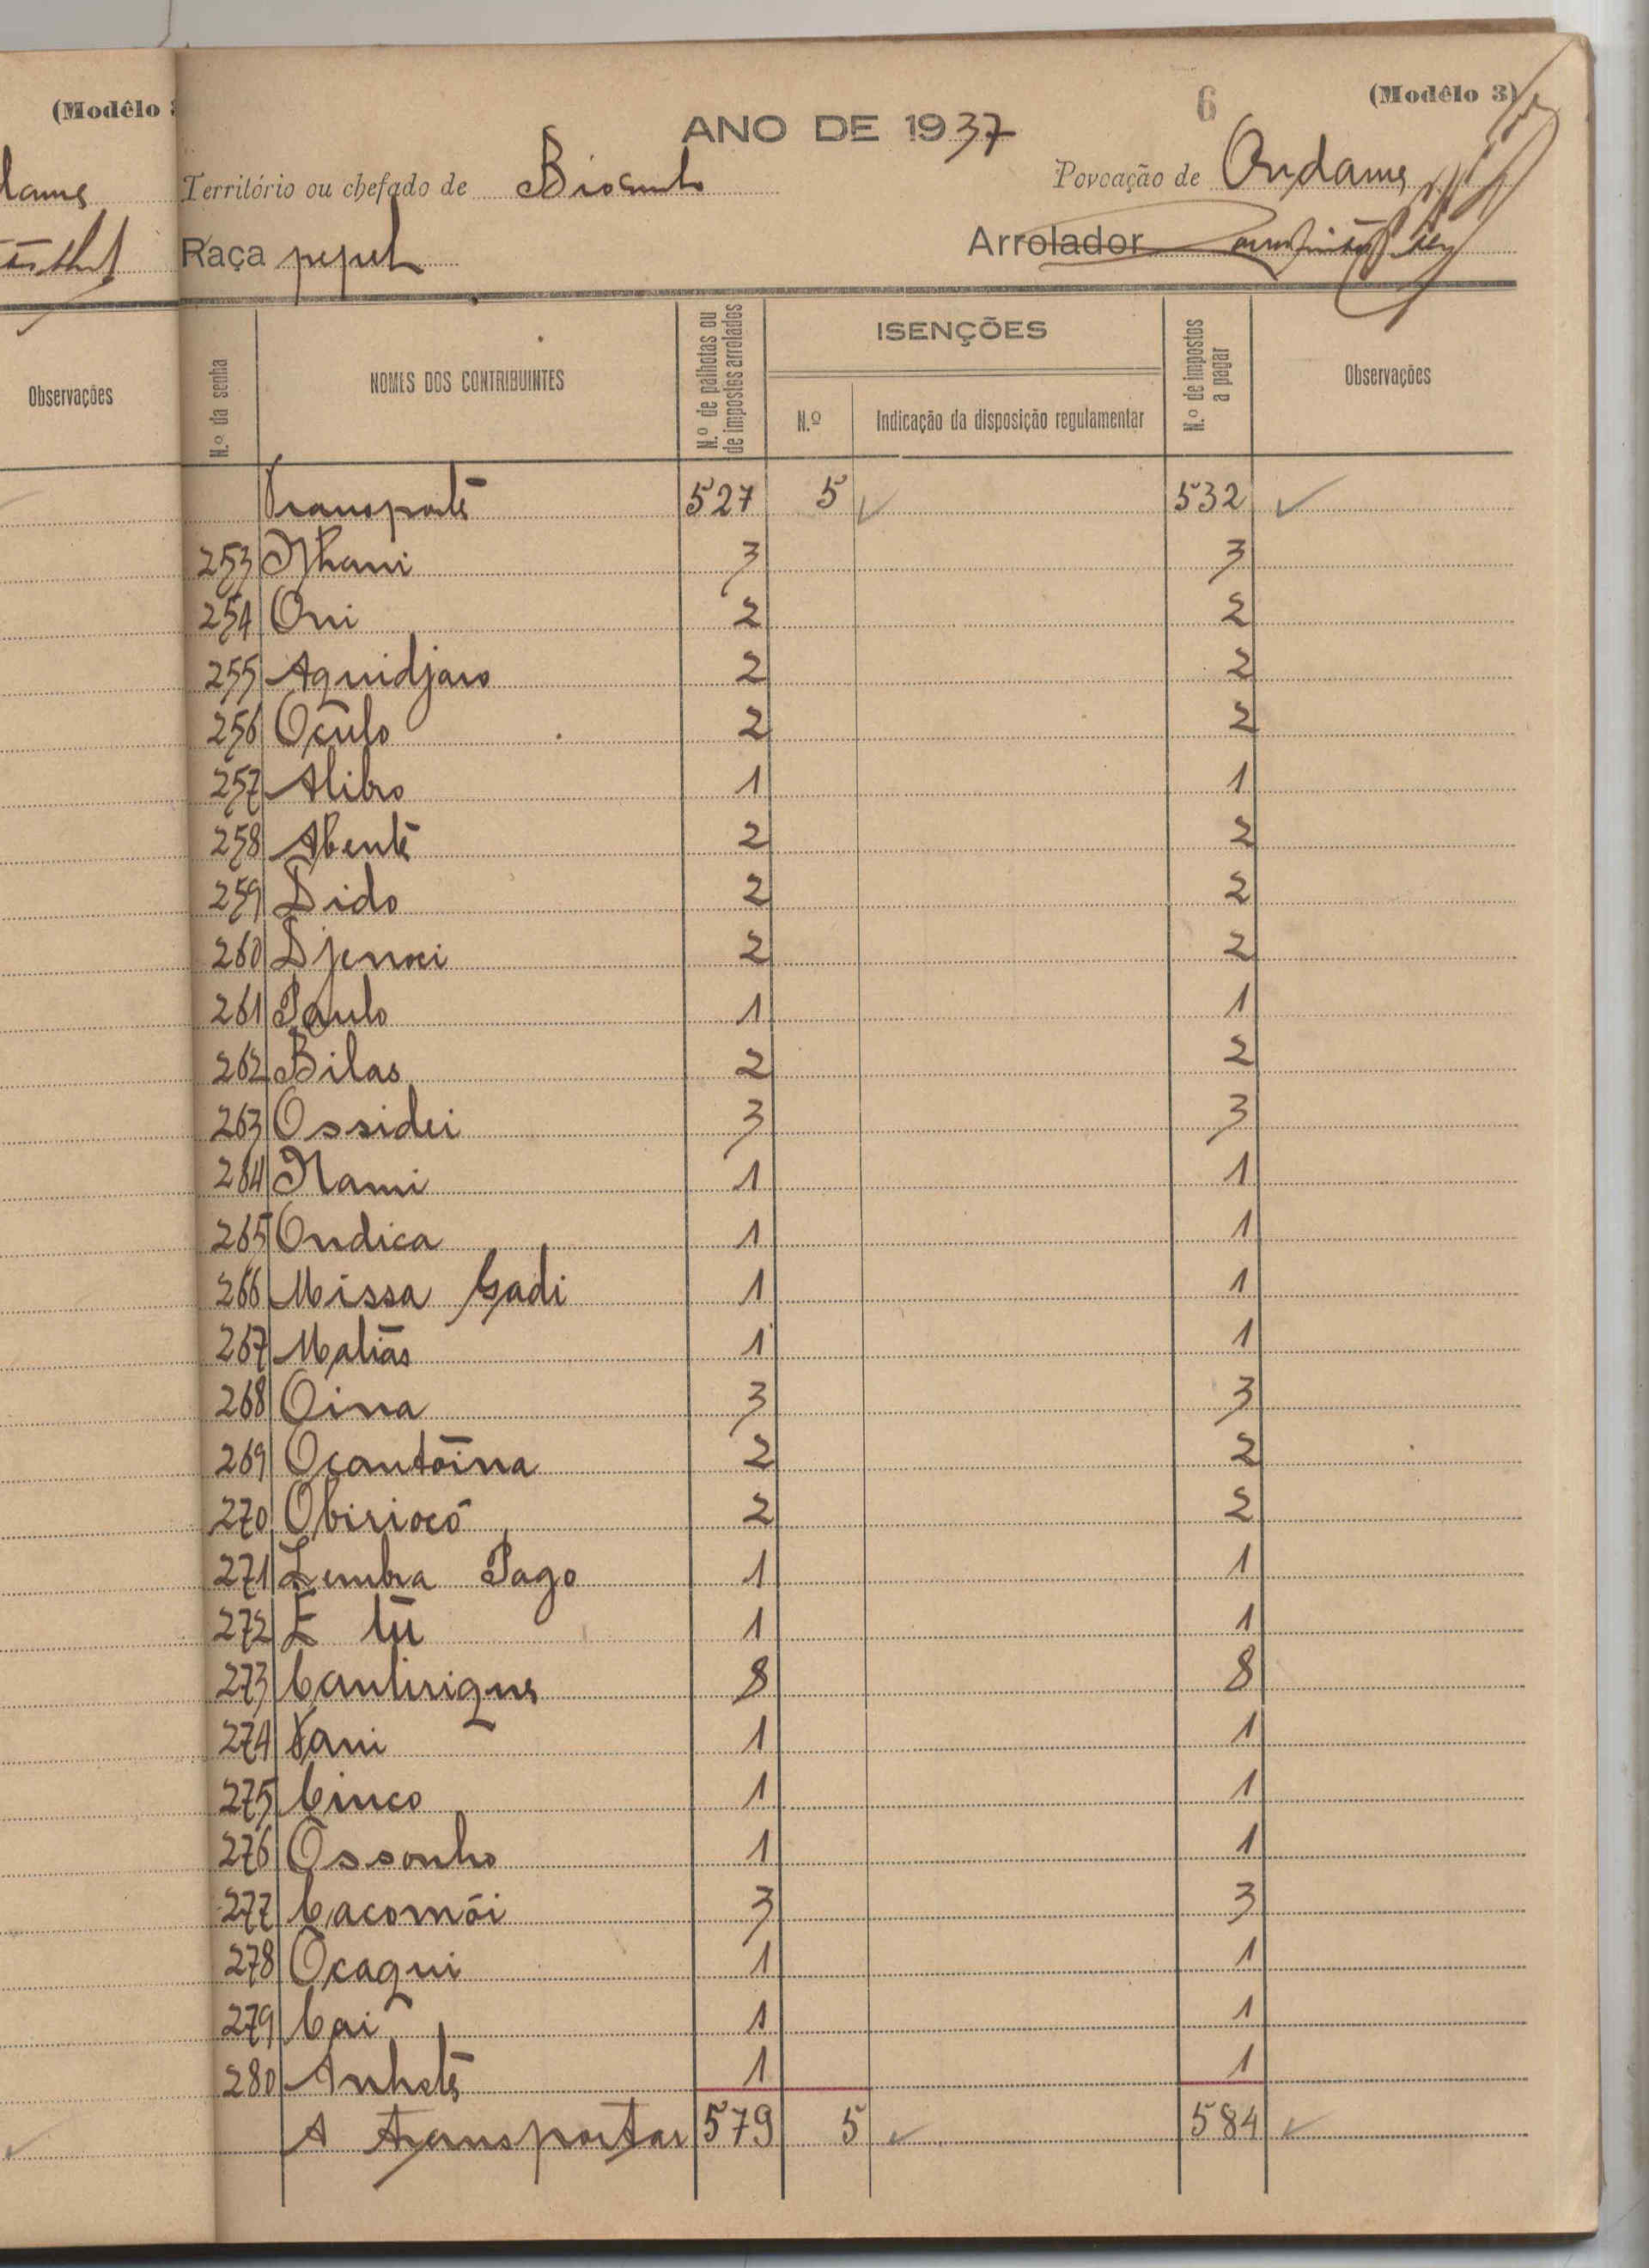 (Modêlo
6
(Modêlo 3)
ANO DE 1937
Território ou chefado de Biocunto
Povoação de Ondame
Raça pepel
Arrolador
Observações
N.º da senha
NOMES DOS CONTRIBUINTES
N.º de palhotas ou de impostos arrolados
ISENÇÕES
N.º
Indicação da disposição regulamentar
N.º de impostos a pagar
Observações
Transporte 527 5 532
253 Nhani 3 3
254 Oni 2 2
255 Aquidjaro 2 2
256 Oculo 2 2
257 Alibro 1 1
258 Abentê 2 2
259 Dido 2 2
260 Djenoei 2 2
261 Paulo 1 1
262 Bilas 2 2
263 Ossidei 3 3
264 Nami 1 1
265 Ondica 1 1
266 Missa Gadi 1 1
267 Matias 1 1
268 Oina 3 3
269 Ocantoina 2 2
270 Obiriocó 2 2
271 Lembra Pago 1 1
272 E tu 1 1
273 Cantirique 8 8
274 Vani 1 1
275 Cinco 1 1
276 Ossonho 1 1
277 Cacomói 3 3
278 Ocaqui 1 1
279 Cai 1 1
280 Anhotê 1 1
A transportar 579 5 584